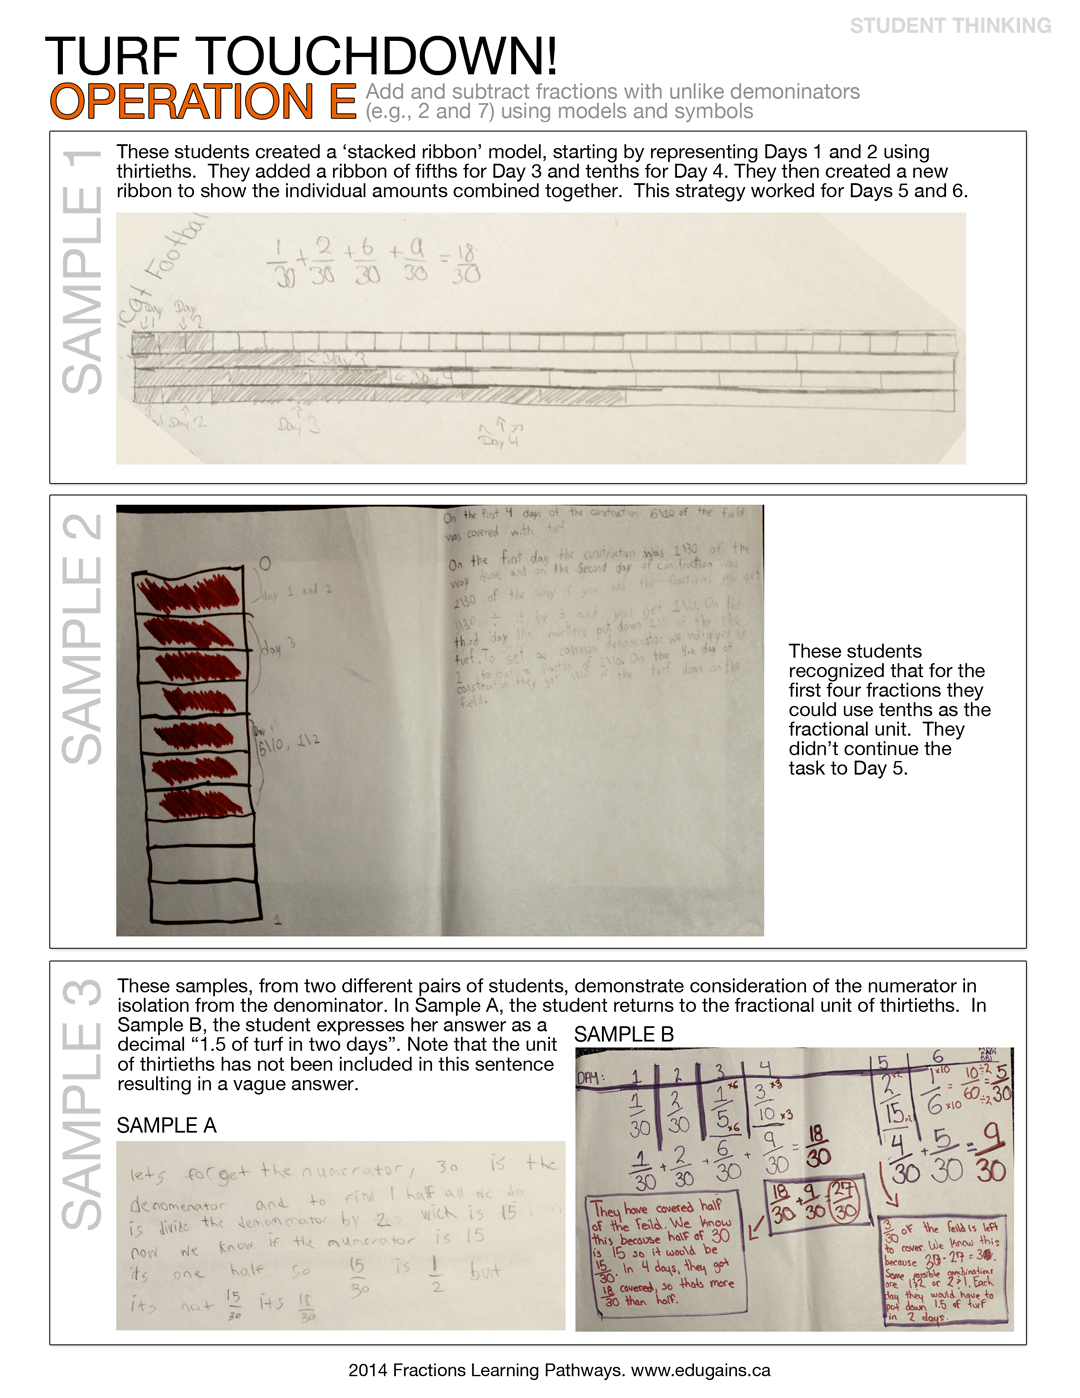 STUDENT THINKING
TURF TOUCHDOWN!
OPERATION E
Add and subtract fractions with unlike demoninators
(e.g., 2 and 7) using models and symbols
SAMPLE 1
These students created a ‘stacked ribbon’ model, starting by representing Days 1 and 2 using
thirtieths. They added a ribbon of fifths for Day 3 and tenths for Day 4. They then created a new
ribbon to show the individual amounts combined together. This strategy worked for Days 5 and 6.
1/30 + 2/30 + 6/30 + 9/30 = 18/30
Day 1 Day 2
< Day 3
< Day 4
Day 2 Day 3 Day 4
SAMPLE 2
On the first 4 days of the construction 6\10 of the field
was covered with turf
On the first day the construction was 1\30 of the
way done and on the second day of construction was
2\30 of the way if you add the fractions you get
÷ it by 3 and you get 1\10. On the
third day the workers put down of the
turf. To get a common denominator we
On the day of
construction they got of the turf done on the
field.
0
day 1 and 2
day 3
5\10, 1\2
1
These students
recognized that for the
first four fractions they
could use tenths as the
fractional unit. They
didn’t continue the
task to Day 5.
SAMPLE 3
These samples, from two different pairs of students, demonstrate consideration of the numerator in
isolation from the denominator. In Sample A, the student returns to the fractional unit of thirtieths. In
Sample B, the student expresses her answer as a
decimal “1.5 of turf in two days”. Note that the unit
of thirtieths has not been included in this sentence
resulting in a vague answer.
SAMPLE A
lets forget the numerator, 30 is the
denomenator and to find 1 half all we do
is divide the demomenator by 2 wich is 15
now we know if the numerator is 15
its one half so 15/30 is 1/2 but
its not 15/30 its 18/30
SAMPLE B
DAY: 1 2 3 4 5 6
1/30 2/30 1/5 ×6 ×6 3/10 ×3 ×3
1/30 + 2/30 + 6/30 + 9/30 = 18/30
2/15 ×2 ×2 1/6 ×10 ×10 = 10/60 ÷2 ÷2 = 5/30
4/30 + 5/30 = 9/30
18/30 + 9/30 = 27/30
They have covered half
of the feild. We know
this because half of 30
is 15 so it would be
15/30. In 4 days, they got
18/30 covered, so thats more
than half.
3/30 of the feild is left
to cover. We know this
because 30 - 27 = 3
Some possible combinations
are 1+2 or 2+1. Each
day they would have to
put down 1.5 of turf
in 2 days.
2014 Fractions Learning Pathways. www.edugains.ca